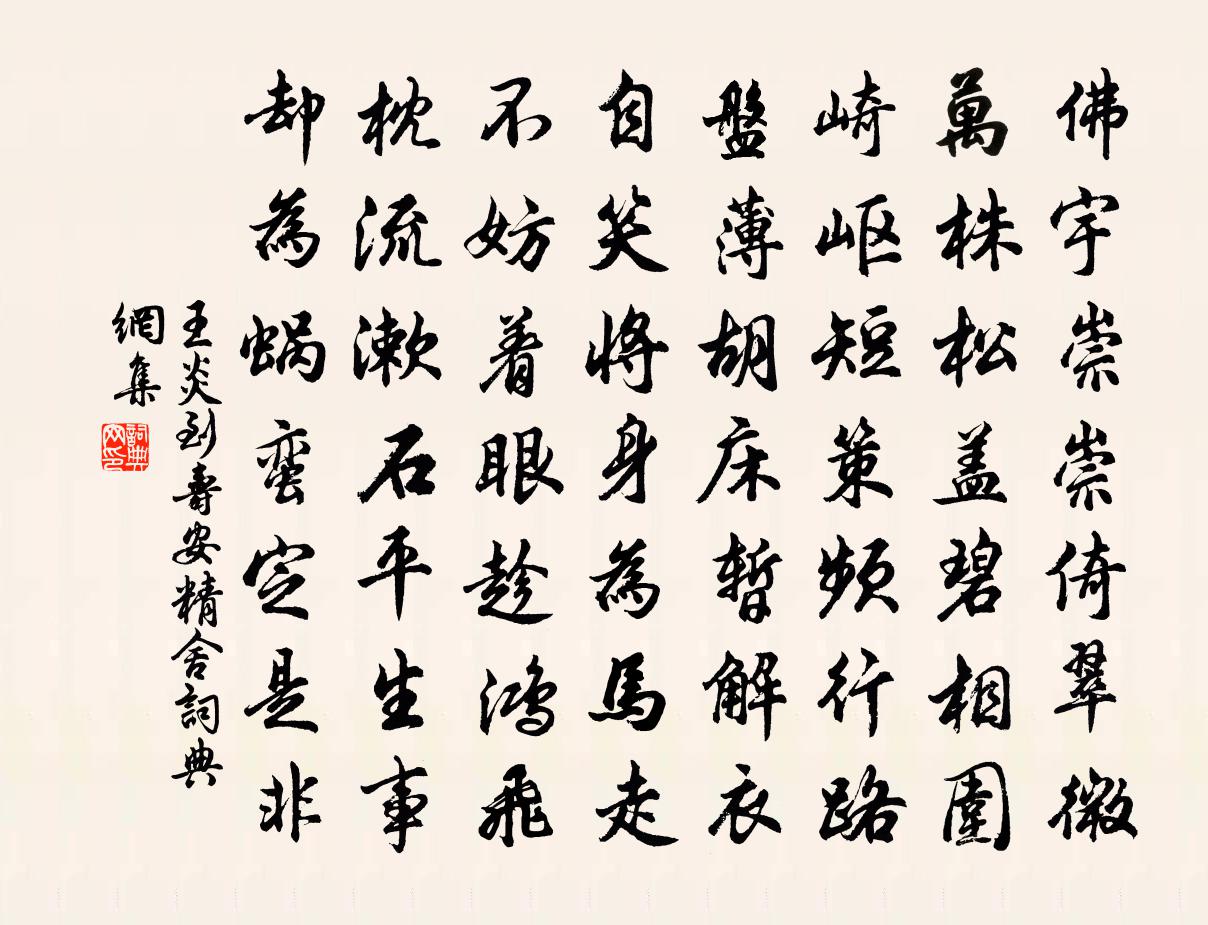 佛宇崇崇倚翠微
萬株松盖碧相圍
崎岖短策频行路
盤薄胡床暫解衣
自笑将身為馬走
不妨着眼趁鴻飛
枕流漱石平生事
却為蝸蛮定是非
王炎到壽安精舍詞典
網集
詞典
网印